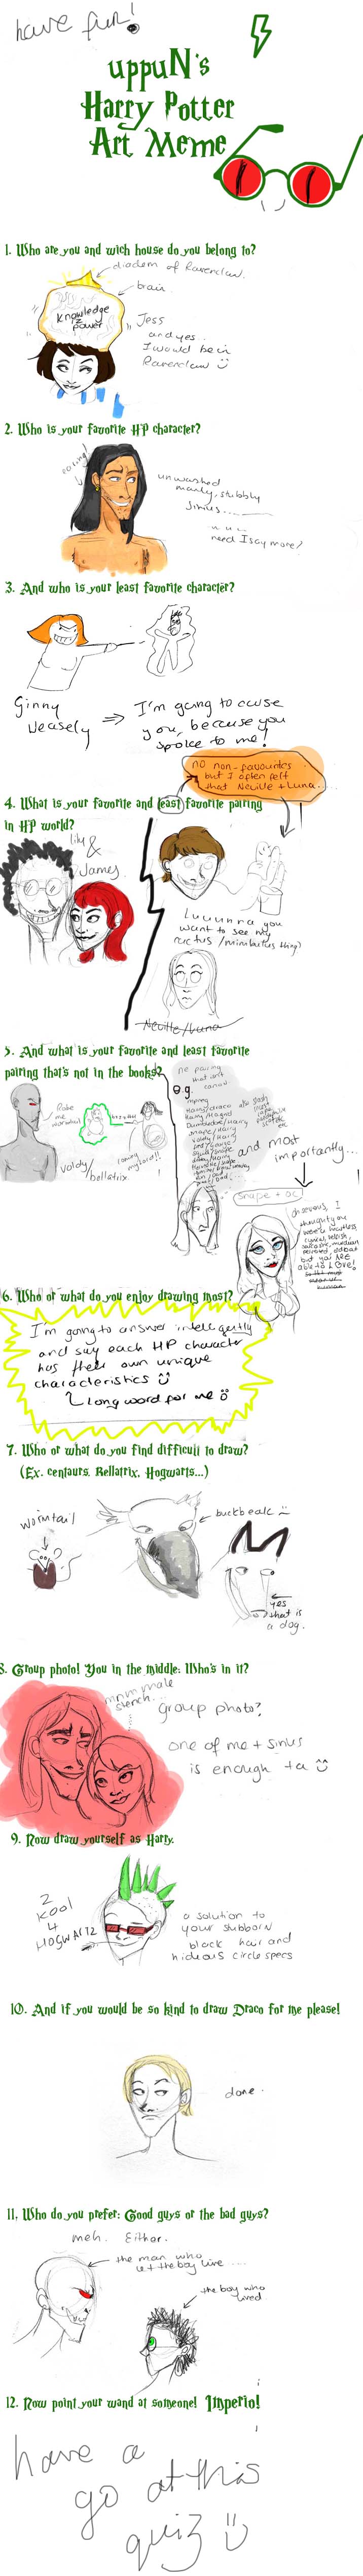 have fun!
uppuN's
Harry Potter
Art Meme
1. Who are you and wich house do you belong to?
diadem of Ravenclaw.
brain.
Knowledge
iz
power
Jess
and yes.
I would be in
Ravenclaw
2. Who is your favorite HP character?
earing!
unwashed
manly, stubbly
Sirius......
need I say more!
3. And who is your least favorite character?
Ginny
Weasely
I'm going to curse
you, because you
spoke to me!
no non-favourites
but I often felt
that Neville + Luna....
4. What is your favorite and least favorite pairing
in HP world?
lily
&
James.
Luuunna you
want to see my
cactus/mimbletus thing?
Neville/Luna
5. And what is your favorite and least favorite
pairing that's not in the books?
voldy/
bellatrix.
coming
my lord!!
ne pairing
that isn't
canon
e.g.
Harry/draco
Harry/Hagrid
Dumbledore/Harry
snape/Harry
voldy/Harry
and most
importantly...
snape + oc
oh severus, I
thought you
were heartless,
cynical, selfish,
but you ARE
able to LOVE!
6. Who or what do you enjoy drawing most?
I'm going to answer intelligently
and say each HP character
has their own unique
characteristics
long word for me
7. Who or what do you find difficult to draw?
(Ex. centaurs, Bellatrix, Hogwarts...)
wormtail
buckbeak
yes
that is
a dog.
8. Group photo! You in the middle; Who's in it?
mmm male
stench...
group photo?
one of me + sirius
is enough ta
9. Now draw yourself as Harry.
2
KOOL
4
HOGWARTZ
a solution to
your stubborn
black hair and
hideous circle specs
10. And if you would be so kind to draw Draco for me please!
done.
11. Who do you prefer: Good guys or the bad guys?
meh. Either.
the man who
let the boy live ...
the boy who
lived.
12. Now point your wand at someone! Imperio!
have a
go at this
quiz